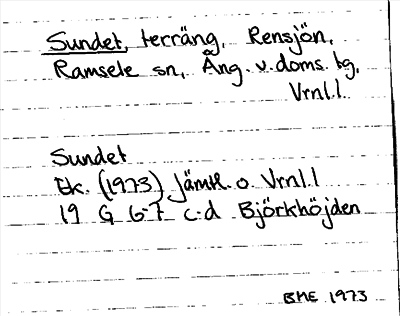 Sundet, terräng, Rensjön,
Ramsele sn, Ång. v. doms. tg,
Vrnl.l.
Sundet
Ek. (1973) Jämtl. o. Vrnl.l
19 G 6-7 c-d Björkhöjden
BME 1973